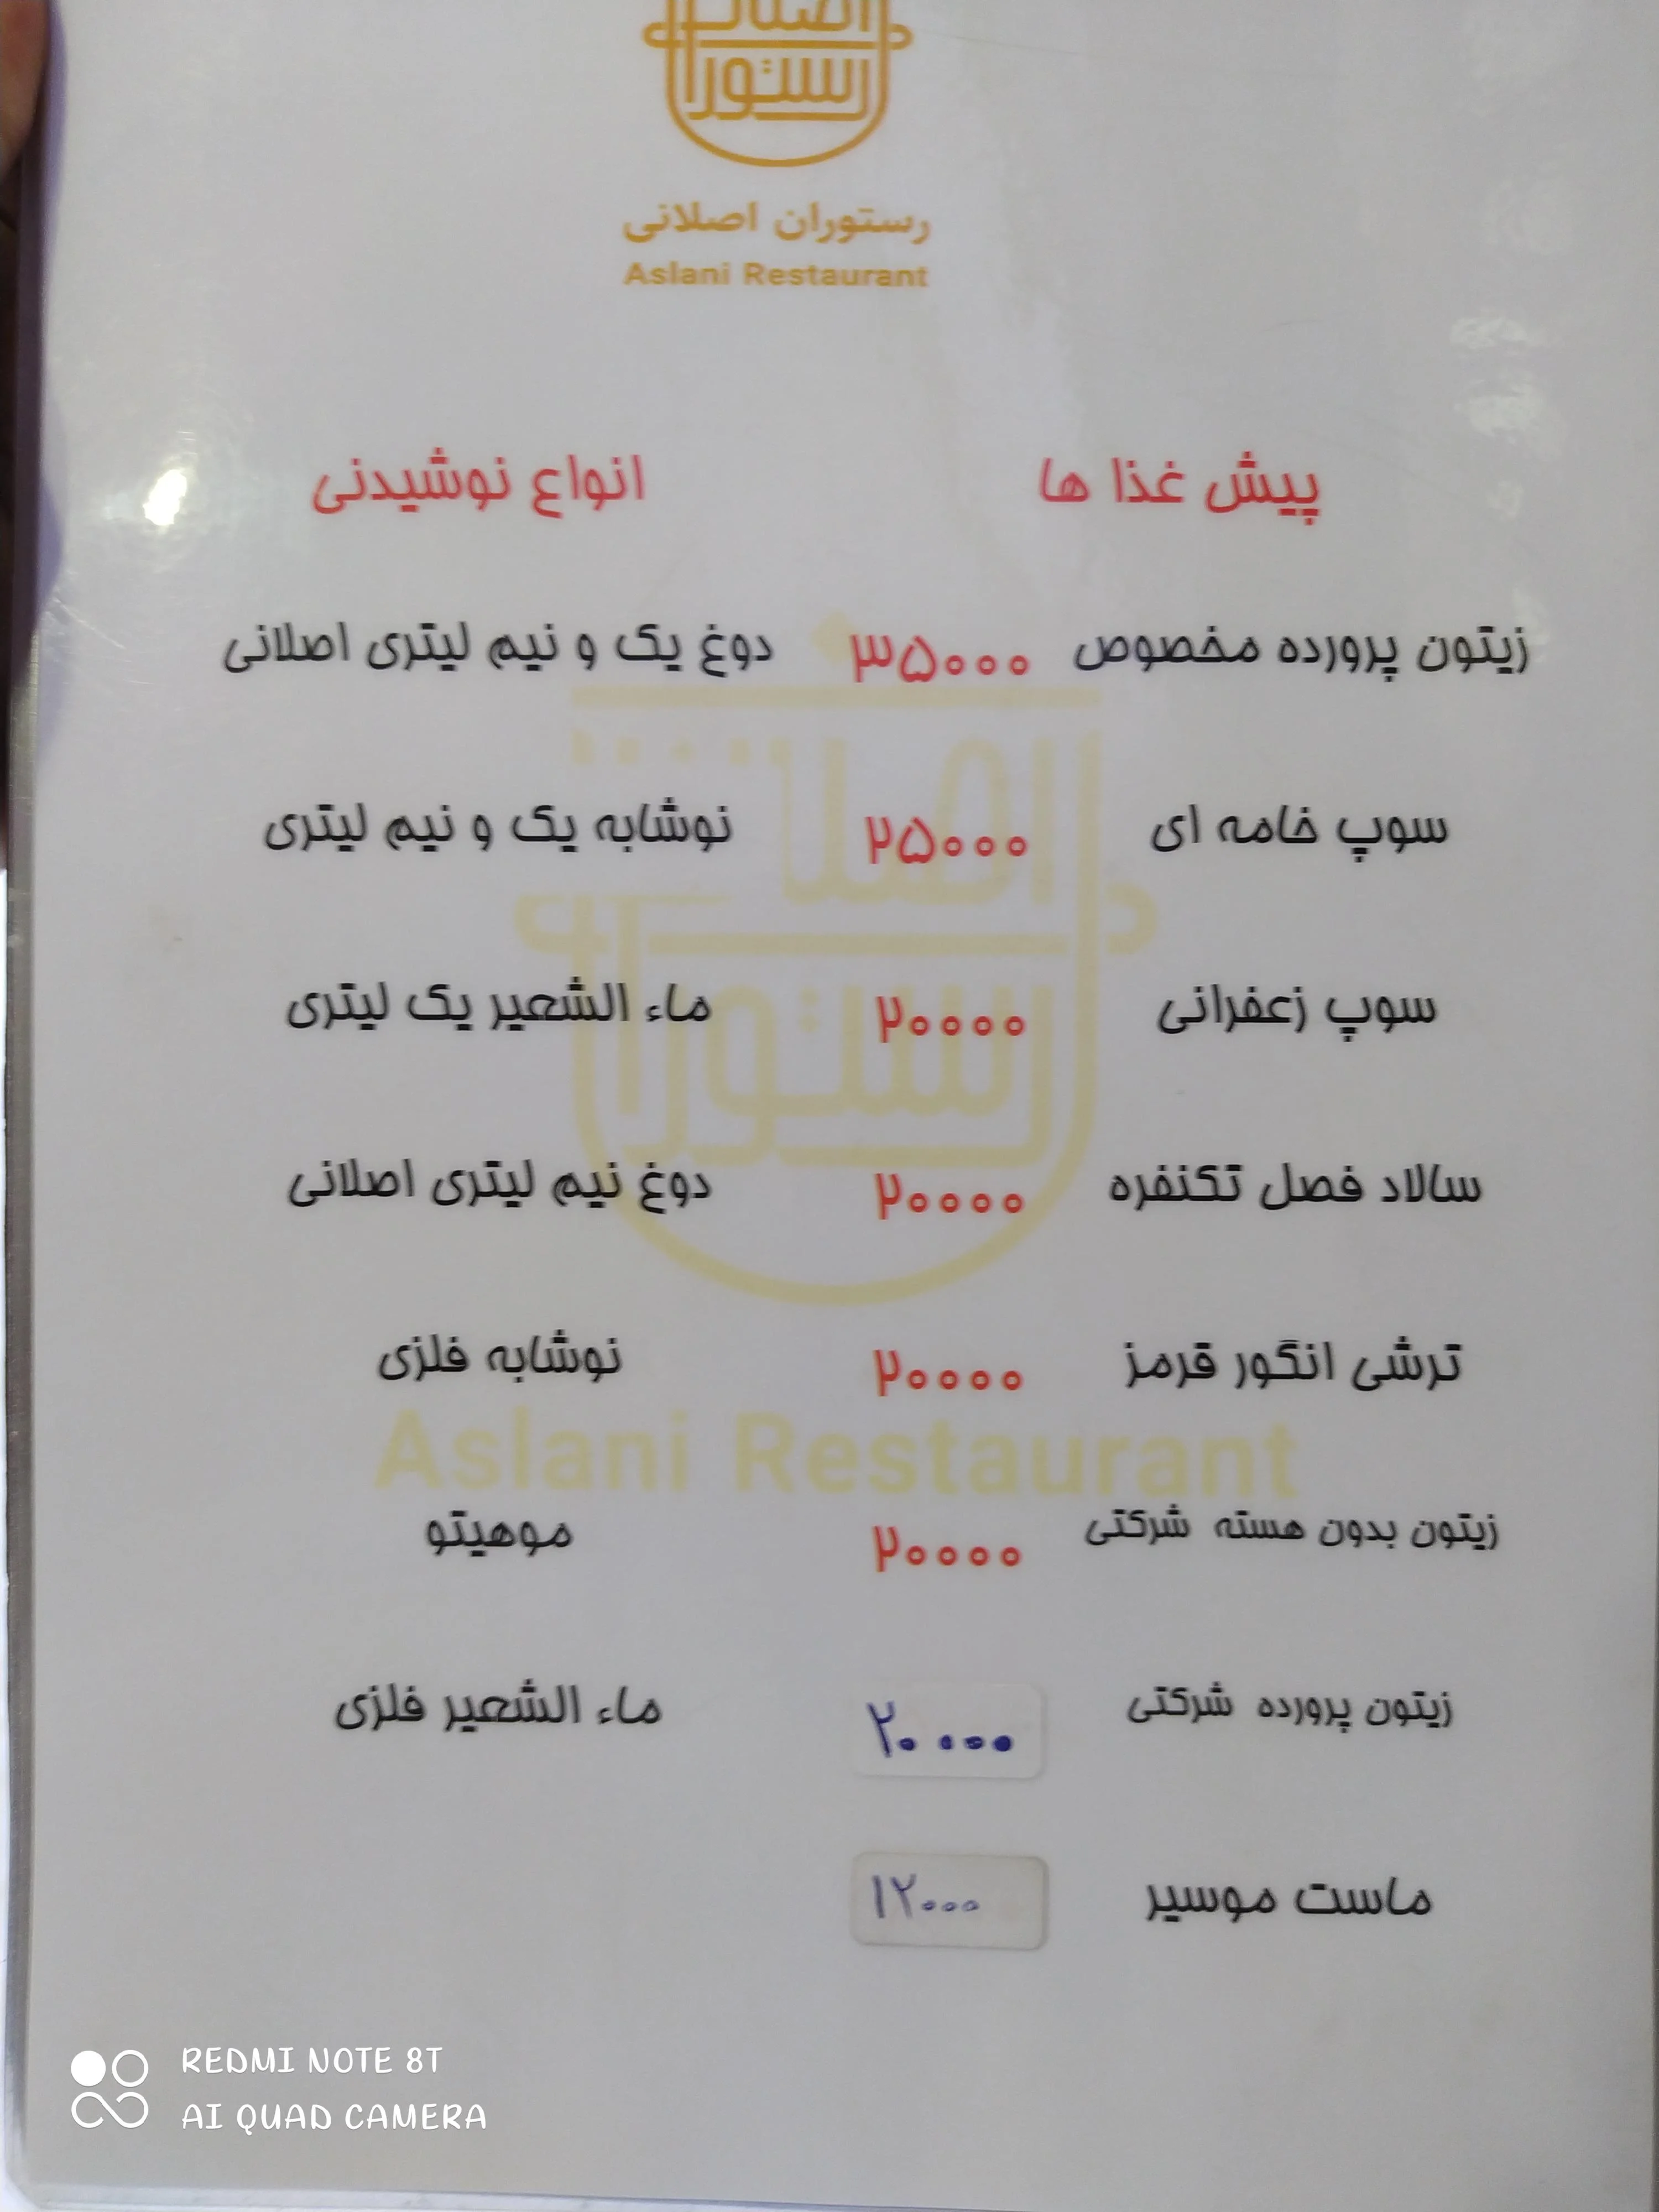 رستوران اصلانی
Aslani Restaurant
پیش غذا ها
انواع نوشیدنی
زیتون پرورده مخصوص ۳۵۰۰۰ دوغ یک و نیم لیتری اصلانی
سوپ خامه ای ۲۵۰۰۰ نوشابه یک و نیم لیتری
سوپ زعفرانی ۲۰۰۰۰ ماء الشعیر یک لیتری
سالاد فصل تکنفره ۲۰۰۰۰ دوغ نیم لیتری اصلانی
ترشی انگور قرمز ۲۰۰۰۰ نوشابه فلزی
Aslani Restaurant
زیتون بدون هسته شرکتی ۲۰۰۰۰ موهیتو
زیتون پرورده شرکتی ۲۰۰۰۰ ماء الشعیر فلزی
ماست موسیر ۱۲۰۰۰
REDMI NOTE 8T
AI QUAD CAMERA